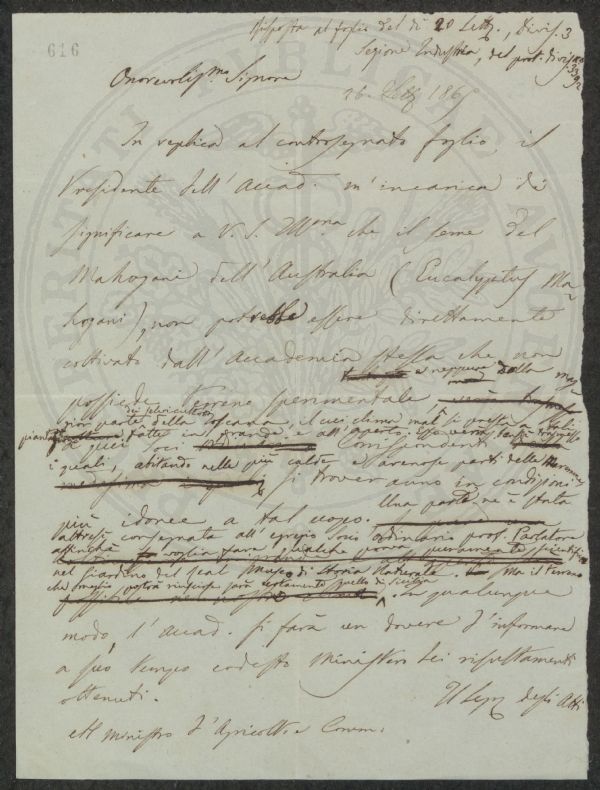 616
Risposta al foglio del dì 20 Sett., Divis. 3
Sezione Industria, del prot. divis.
Onorevolis.mo Signore
26. Sett. 1865
In replica al controsegnato foglio, il
Presidente dell'Accad. m'incarica di
significare a V. S. Ill.ma che il seme del
Mahogani dell'Australia (Eucalyptus Ma-
hogani), non potrebbe essere direttamente
coltivato dall'Accademia stessa che non
possiede terreno sperimentale, e neppure dalla mag
gior parte della Toscana, il cui clima mal si presta a tali
piante fatte in grande e all'aperto.
a quei soci corrispondenti
i quali, abitando nelle più calde e arenose parti della Maremma
si troveranno in condizioni
più idonee a tal uopo. Una parte ne è stata
altresì consegnata all'egregio socio ordinario prof. Parlatore
affinchè voglia fare qualche prova puramente scientifica
nel Giardino del Real Museo di Storia Naturale. Ma il terreno
che meglio potrà riuscire sarà certamente quello di Sicilia
. In qualunque
modo, l'Accad. si farà un dovere d'informare
a suo tempo codesto Ministero dei risultamenti
ottenuti.
Il Segr. degli Atti
Al Ministro d'Agricolt. e Comm.